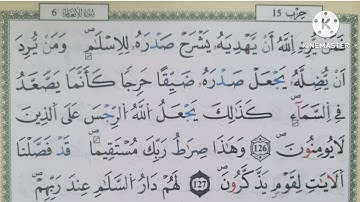 حِزْب 15 سُورَةُ الأَنْعَام 6
KINEMASTER
يُرِدِ اللَّهُ أَنْ يَهْدِيَهُۥ يَشْرَحْ صَدْرَهُۥ لِلِاسْلَٰمِ وَمَنْ يُرِدَ
اَنْ يُضِلَّهُۥ يَجْعَلْ صَدْرَهُۥ ضَيِّقًا حَرِجًا كَأَنَّمَا يَصَّعَّدُ
فِي السَّمَآءِ كَذَٰلِكَ يَجْعَلُ اللَّهُ الرِّجْسَ عَلَى الَّذِينَ
لَا يُومِنُونَ 126 وَهَٰذَا صِرَٰطُ رَبِّكَ مُسْتَقِيمًا قَدْ فَصَّلْنَا
اَلَايَٰتِ لِقَوْمٍ يَذَّكَّرُونَ 127 لَهُمْ دَارُ السَّلَٰمِ عِندَ رَبِّهِمْ